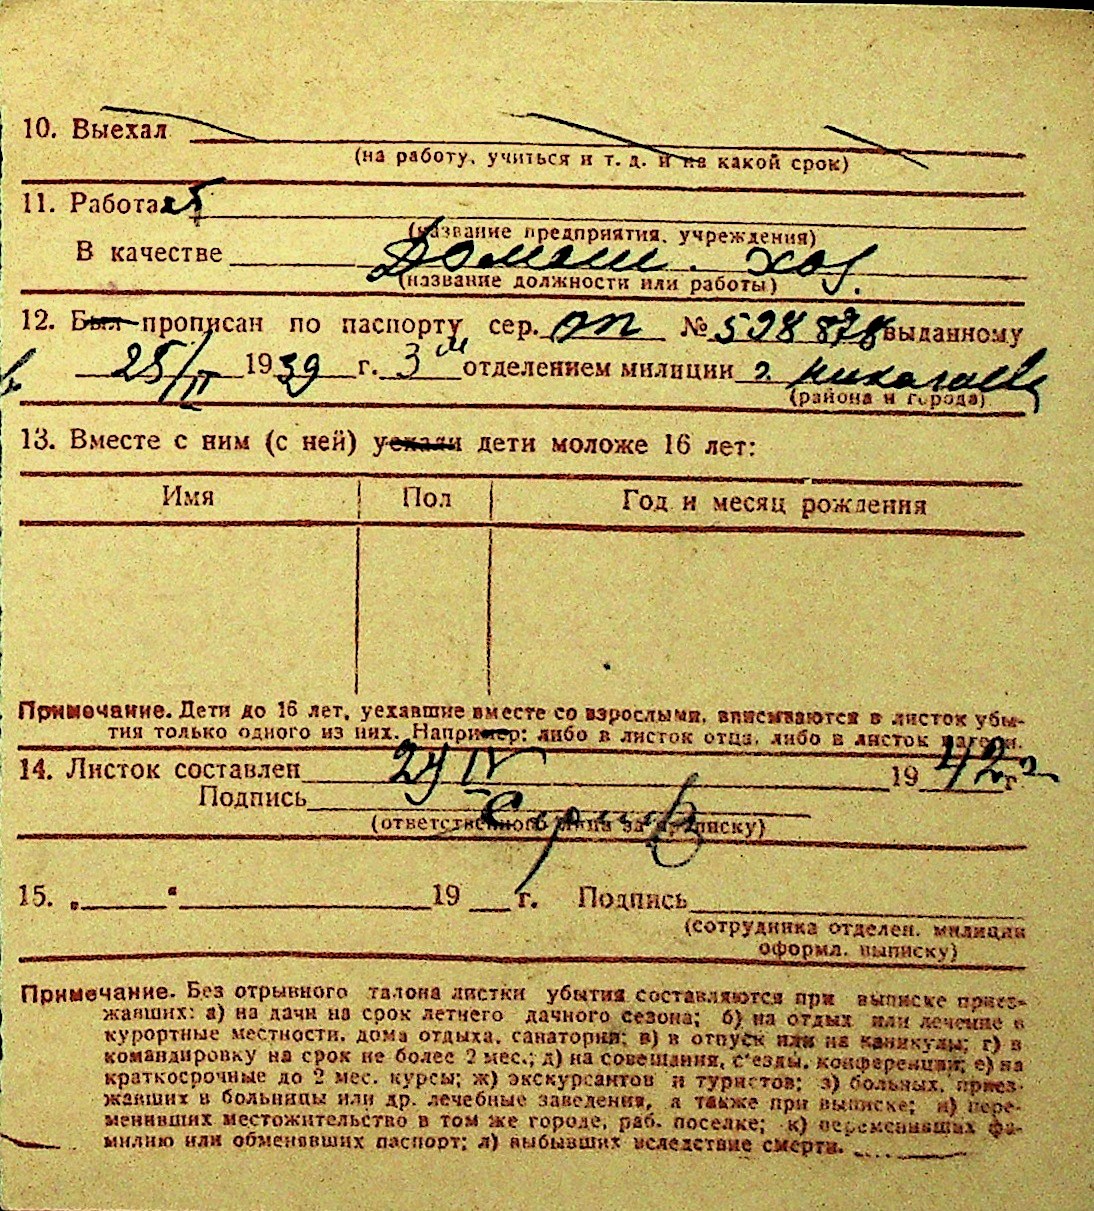 10. Выехал
(на работу, учиться и т. д. и на какой срок)
11. Работает
(название предприятия, учреждения)
В качестве Домаш. хоз.
(название должности или работы)
12. Был прописан по паспорту сер. № 528878 выданному
25/II 1939 г. 3 м отделением милиции г. Николаева
(района и города)
13. Вместе с ним (с ней) уехали дети моложе 16 лет:
Имя Пол Год и месяц рождения
Примечание. Дети до 16 лет, уехавшие вместе со взрослыми, вписываются в листок убы-
тия только одного из них. Например: либо в листок отца, либо в листок матери.
14. Листок составлен IV 1942 г.
Подпись
(ответственного лица за прописку)
15. „ “ 19 г. Подпись
(сотрудника отделен. милиции
оформл. выписку)
Примечание. Без отрывного талона листки убытия составляются при выписке приез-
жавших: а) на дачи на срок летнего дачного сезона; б) на отдых или лечение в
курортные местности, дома отдыха, санатории; в) в отпуск или на каникулы; г) в
командировку на срок не более 2 мес.; д) на совещания, с'езды, конференции; е) на
краткосрочные до 2 мес. курсы; ж) экскурсантов и туристов; з) больных, приез-
жавших в больницы или др. лечебные заведения, а также при выписке; и) пере-
менивших местожительство в том же городе, раб. поселке; к) переменивших фа-
милию или обменявших паспорт; л) выбывших вследствие смерти.